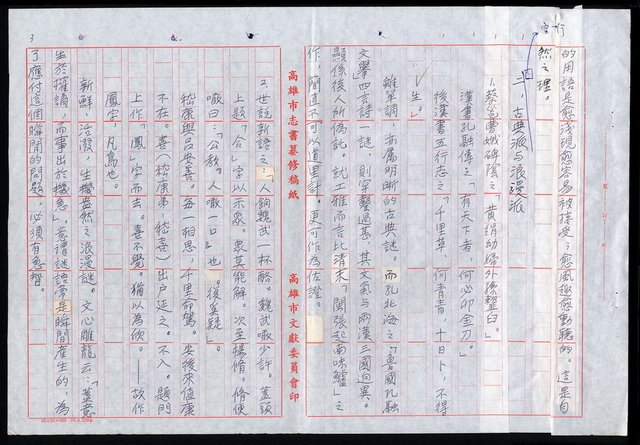 空行
的用語是愈淺現愈容易被接受；愈風趣愈動聽的。這是自
然之理。
二、古典派与浪漫派
1.蔡邕曹娥碑陰之「黃絹幼婦外孫韲臼。」
漢書孔融傳之「有天下者，何必卯金刀。」
後漢書五行志之「千里草，何青青，十日卜，不得
生。」
雖單調，而屬明晰的古典謎。而孔北海之「魯國孔融
文舉」四言詩一謎，則宛轉過甚，其文氣与兩漢三國迥異。
顯係後人所偽託。就工雅而言比清末「閨張起南味鱸」之
作，簡直不可以道里計。更可作為佐證。
高雄市志書纂修稿紙
高雄市文獻委員會印
2.世說新語之：「人餉魏武一杯酪。魏武噉少許。蓋頭
上題「合」字以示眾。眾莫能解。次至楊脩。脩便
噉曰「公教。人噉一口」也。復奚疑」。
嵇康與呂安善。每一相思，千里命駕。安後來值康
不在。喜（嵇康弟，嵇喜）出戶延之。不入。題門
上作「鳳」字而去。喜不覺。猶以為欣。——故作
鳳字，凡鳥也。
新鮮，活潑，生機盎然之浪漫謎。文心雕龍云：「蓋意
生於權譎，而事出於機急」，意謂謎語常是瞬間產生的，為
了應付這個瞬間的問題，必須有急智。
3